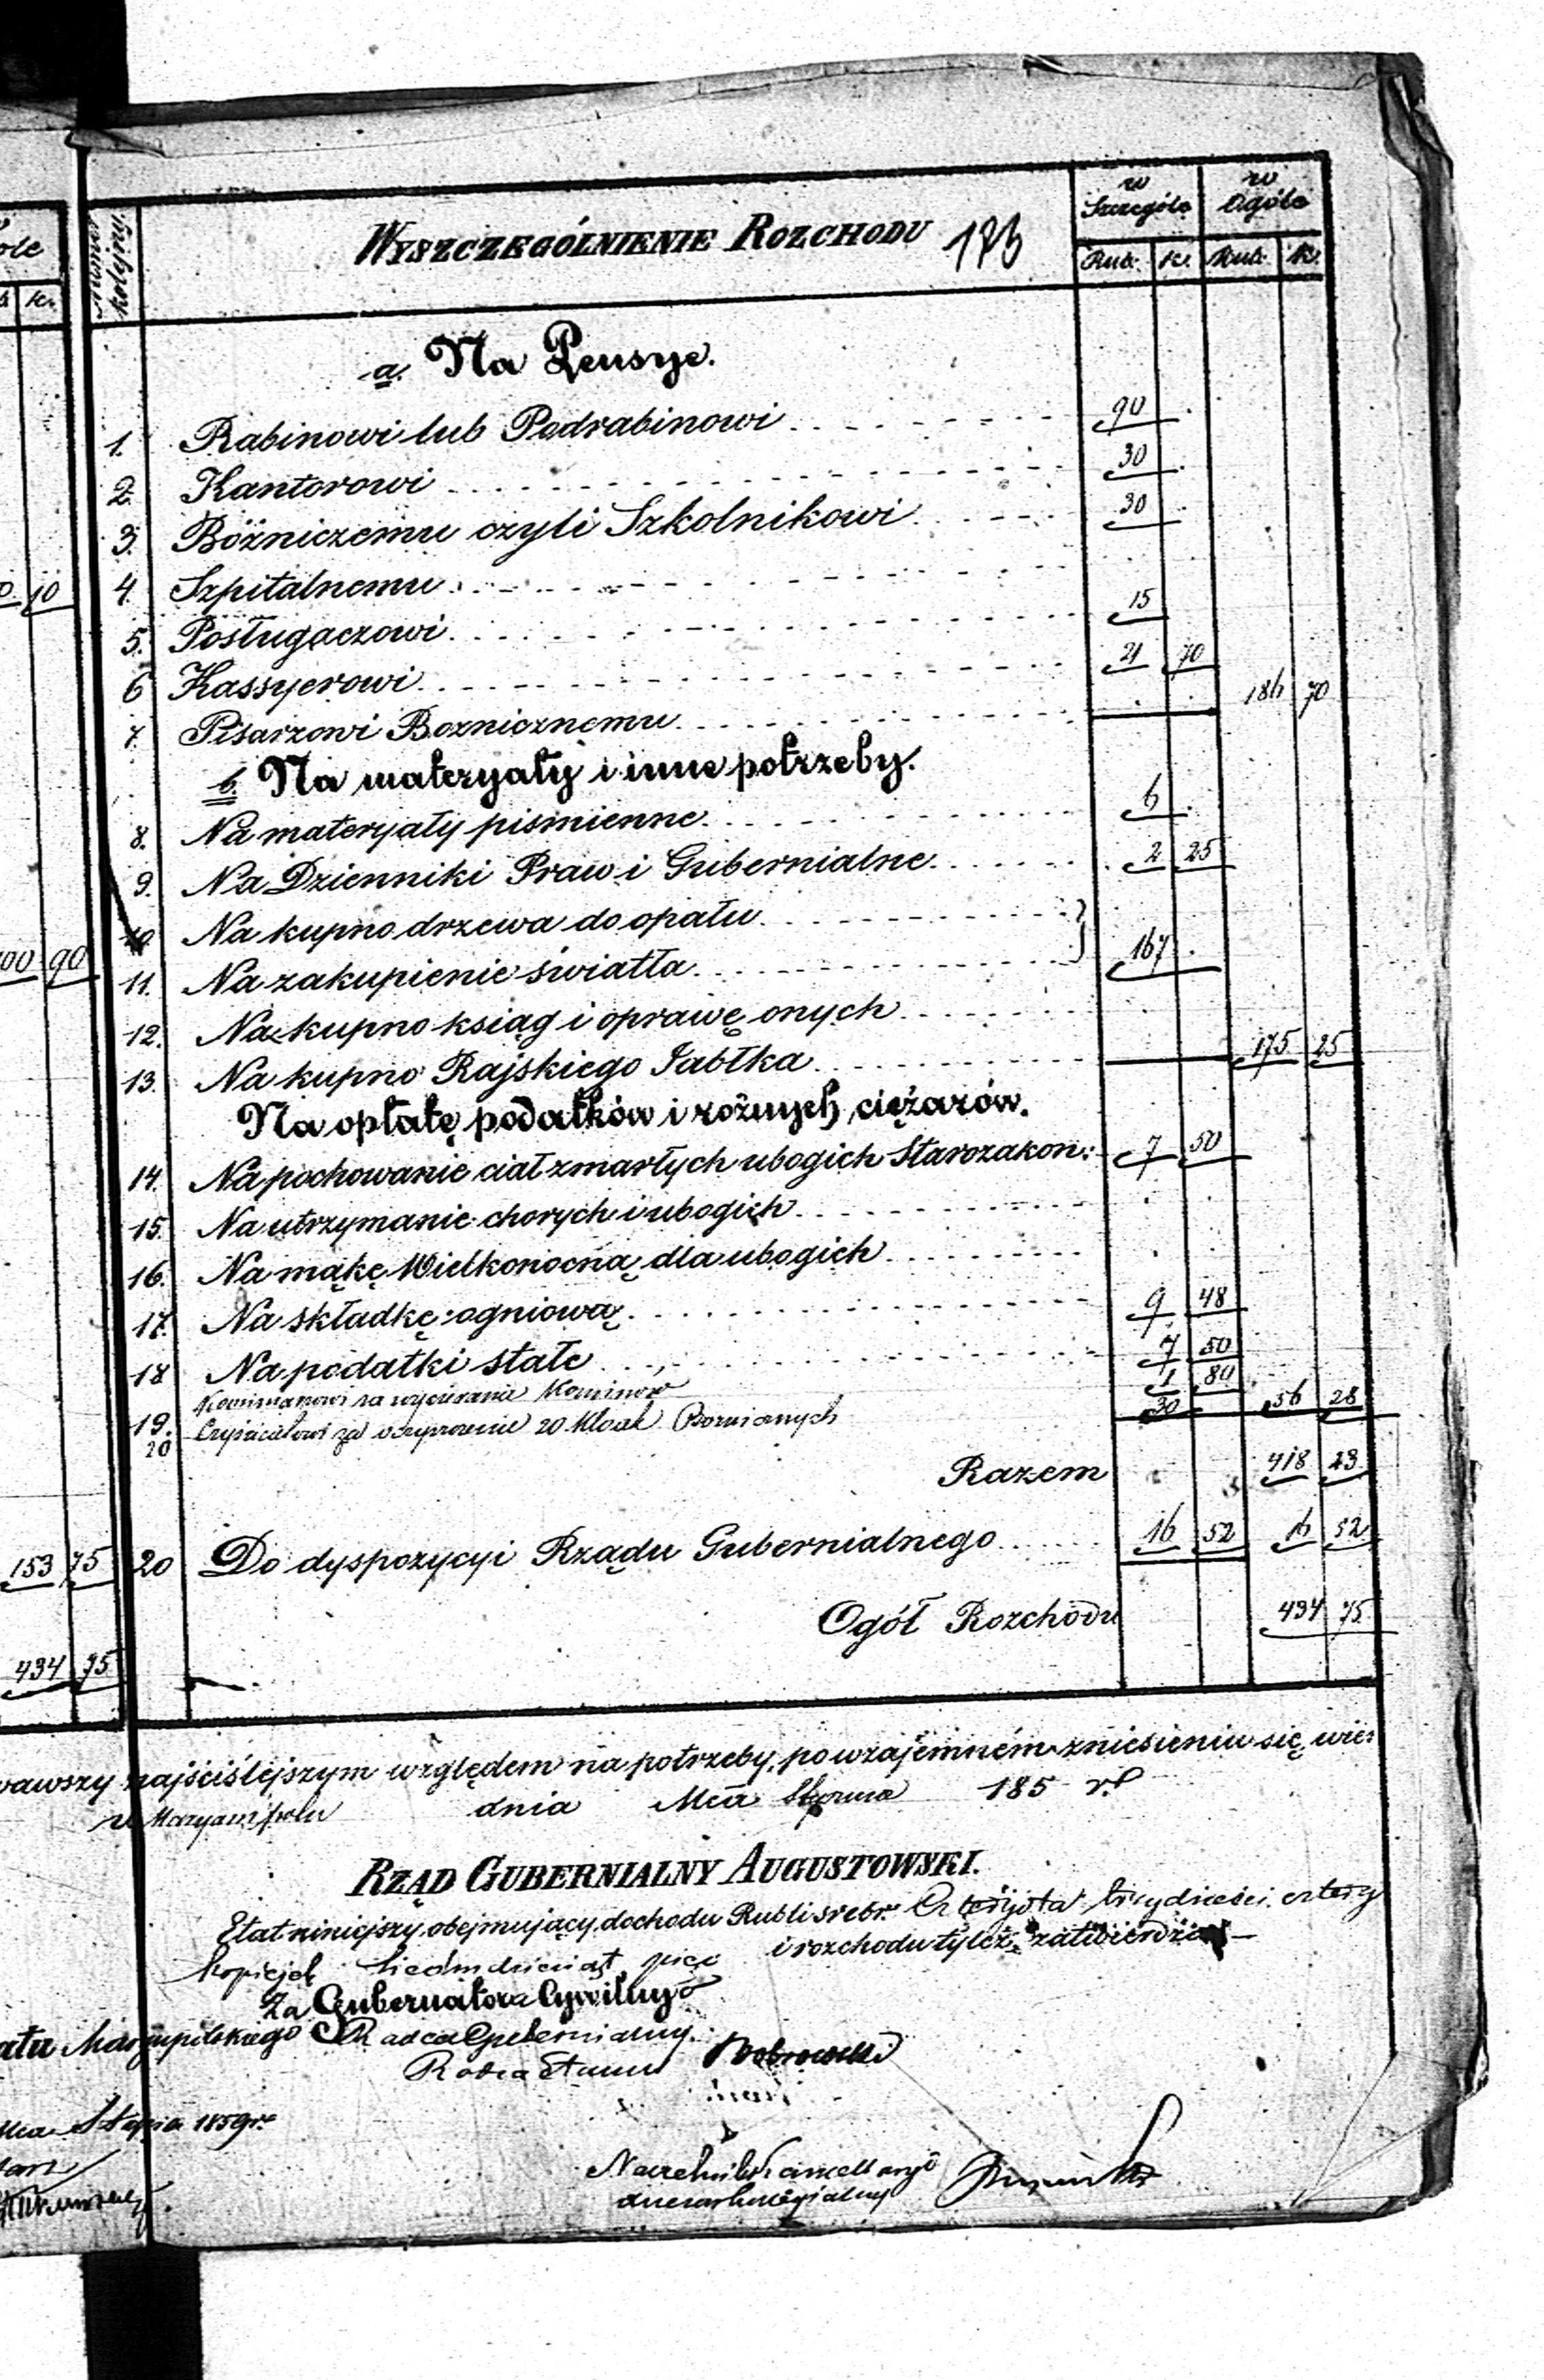 ole
k.
Numer kolejny.
WYSZCZEGÓLNIENIE ROZCHODU 173
w Szczególe
w Ogóle
Rub. k. Rub. k.
a. Na Pensye.
1. Rabinowi lub Podrabinowi 90
2. Kantorowi 30
3. Bóżniczemu czyli Szkolnikowi 30
10 4. Szpitalnemu
5. Posługaczowi 15
6 Kassyerowi 21 70
7. Pisarzowi Boznicznemu 186 70
b. Na materyały i inne potrzeby.
8. Na materyały pismienne 6
9. Na Dzienniki Praw i Gubernialne 2 25
10. Na kupno drzewa do opału
00 90 11. Na zakupienie światła 167
12. Na kupno ksiąg i oprawę onych
13. Na kupno Rajskiego Jabłka 175 25
Na opłatę podatków i rożnych ciężarów.
14. Na pochowanie ciał zmarłych ubogich Starozakon: 7 50
15. Na utrzymanie chorych i ubogich
16. Na mąkę Wielkonocną dla ubogich
17. Na składkę ogniową 9 48
18 Na podatki stałe 7 50
19. Kominiarzowi za wycieranie Kominów 1 80
20 za 20 Kloak Boznicznych 30 56 28
Razem 418 23
153 75 20 Do dyspozycyi Rządu Gubernialnego 16 52 16 52
Ogół Rozchodu 434 75
434 75
wawszy najściślejszym względem na potrzeby, po wzajemném zniesieniu się, wier
w Maryampolu dnia Mca Stycznia 185 r.
RZĄD GUBERNIALNY AUGUSTOWSKI.
Etat niniejszy obejmujący dochodu Rubli srebr. Czterysta trzydzieści cztery
kopiejek siedmdziesiąt pięć i rozchodu tyleż, zatwierdza
Za Gubernatora Cywilny
atu Maryampolskiego Radca Gubernialny
Radca Stanu Dobrowolski
Mca 1859 r.
Naczelnik Kancellaryi